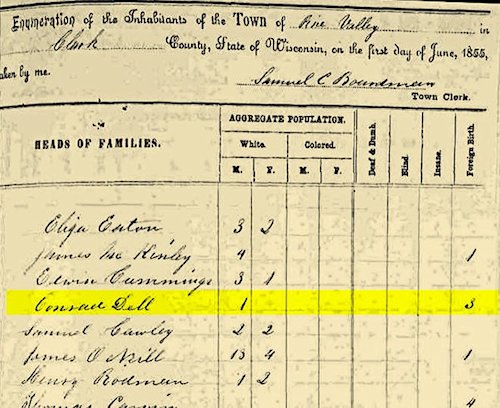 Enumeration of the Inhabitants of the Town of Pine Valley in
Clark County, State of Wisconsin, on the first day of June, 1855,
taken by me. Samuel C Boardman
Town Clerk.
HEADS OF FAMILIES. AGGREGATE POPULATION. Deaf & Dumb. Blind. Insane. Foreign Birth.
White. Colored.
M. F. M. F.
Elija Eaton 3 2
James Mc Kinley 4 1
Edwin Cummings 3 1
Conrad Dell 1 3
Samuel Cawley 2 2
James O Neill 13 4 1
Henry Rodman 1 2
Thomas 4